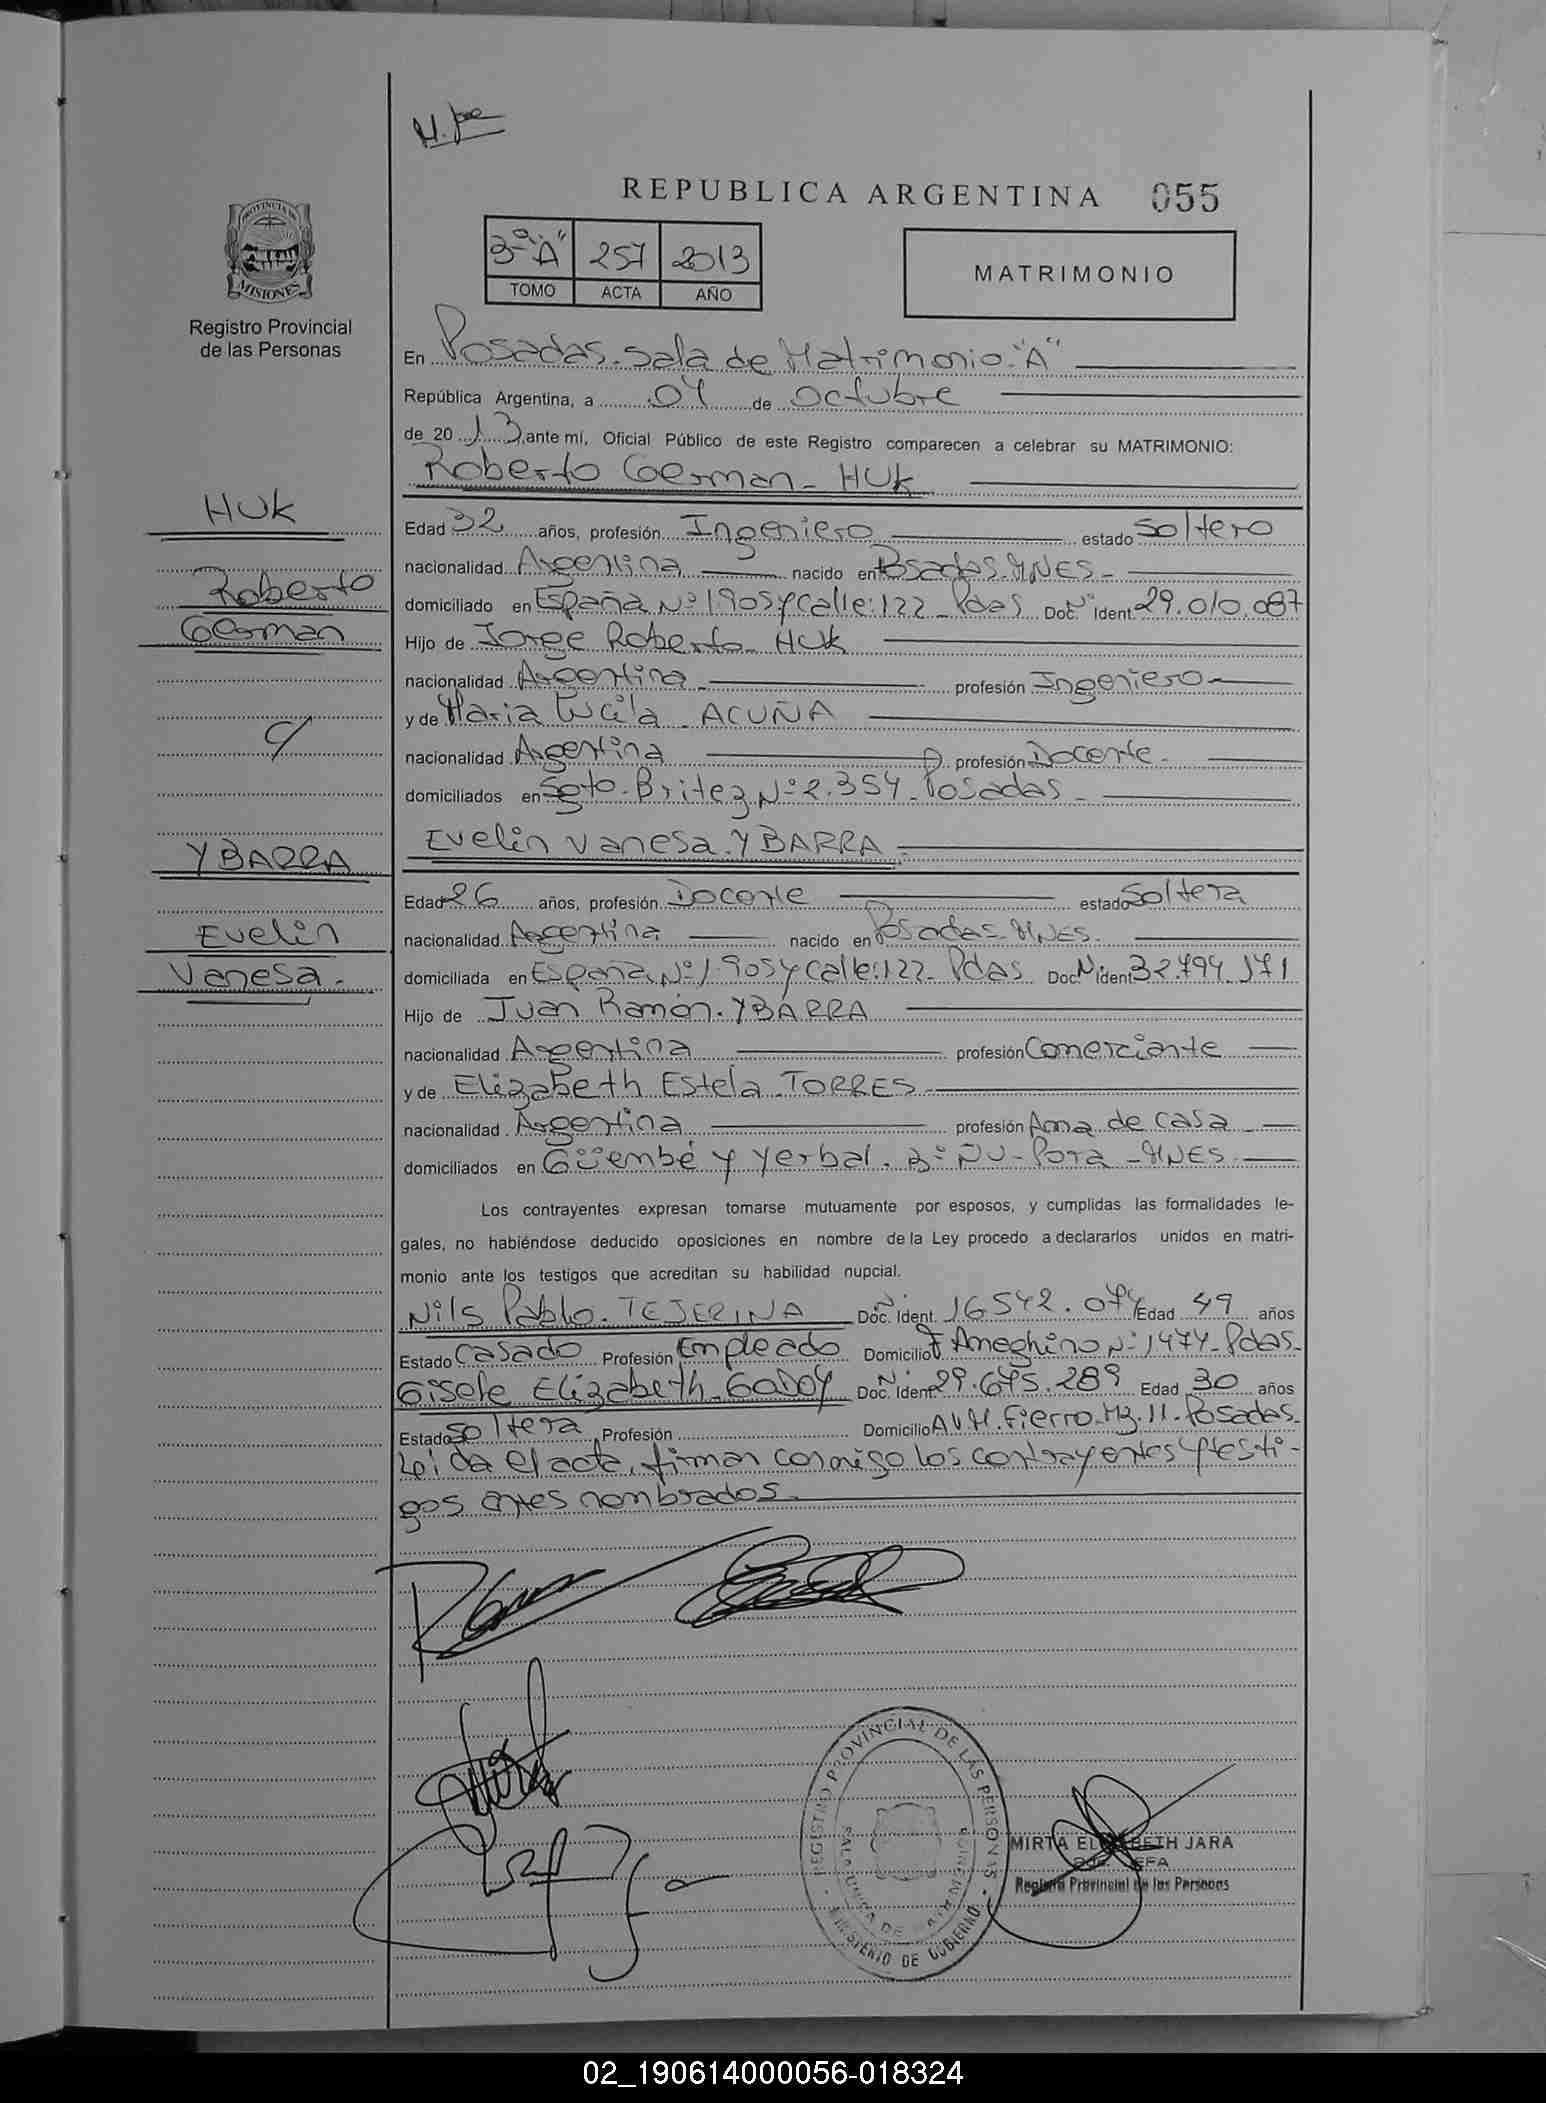 REPUBLICA ARGENTINA 055
PROVINCIA DE
MISIONES
Registro Provincial
de las Personas
3º "A" 257 2013
TOMO ACTA AÑO
MATRIMONIO
En Posadas. Sala de Matrimonio. "A"
República Argentina, a 04 de Octubre
de 2013, ante mí, Oficial Público de este Registro comparecen a celebrar su MATRIMONIO:
Roberto German - HUK
HUK
Roberto
German
c/
YBARRA
Evelin
Vanesa.-
Edad 32 años, profesión Ingeniero estado Soltero
nacionalidad Argentina nacido en Posadas. MNES.-
domiciliado en España Nº 1.905 y Calle: 122 - Pdas Doc. Nº Ident. 29.010.087
Hijo de Jorge Roberto - HUK
nacionalidad Argentina profesión Ingeniero-
y de Maria Lucila - ACUÑA
nacionalidad Argentina profesión Docente.
domiciliados en Sgto. Britez Nº 2.354 - Posadas -
Evelin Vanesa. YBARRA.
Edad 26 años, profesión Docente estado Soltera
nacionalidad Argentina nacido en Posadas - MNES.
domiciliada en España Nº 1.905 y Calle: 122 - Pdas Doc. Nº Ident 32.794.171
Hijo de Juan Ramón. YBARRA
nacionalidad Argentina profesión Comerciante
y de Elizabeth Estela - TORRES-
nacionalidad Argentina profesión Ama de casa
domiciliados en Güembé y Yerbal. Bº ÑU-Porá - MNES.
Los contrayentes expresan tomarse mutuamente por esposos, y cumplidas las formalidades le-
gales, no habiéndose deducido oposiciones en nombre de la Ley procedo a declararlos unidos en matri-
monio ante los testigos que acreditan su habilidad nupcial.
Nils Pablo. TEJERINA Doc. Nº Ident. 16.542.074 Edad 49 años
Estado Casado Profesión Empleado Domicilio F. Ameghino Nº 1474 - Pdas.
Gisele Elizabeth - GODOY Doc. Nº Ident 29.675.289 Edad 30 años
Estado Soltera Profesión Domicilio AV. M. Fierro. Mz. 11 - Posadas.
Leida el acta, firman conmigo los contrayentes y testi-
gos antes nombrados.
REGISTRO PROVINCIAL DE LAS PERSONAS
MINISTERIO DE GOBIERNO
MIRTA ELIZABETH JARA
Registro Provincial de las Personas
02_190614000056-018324